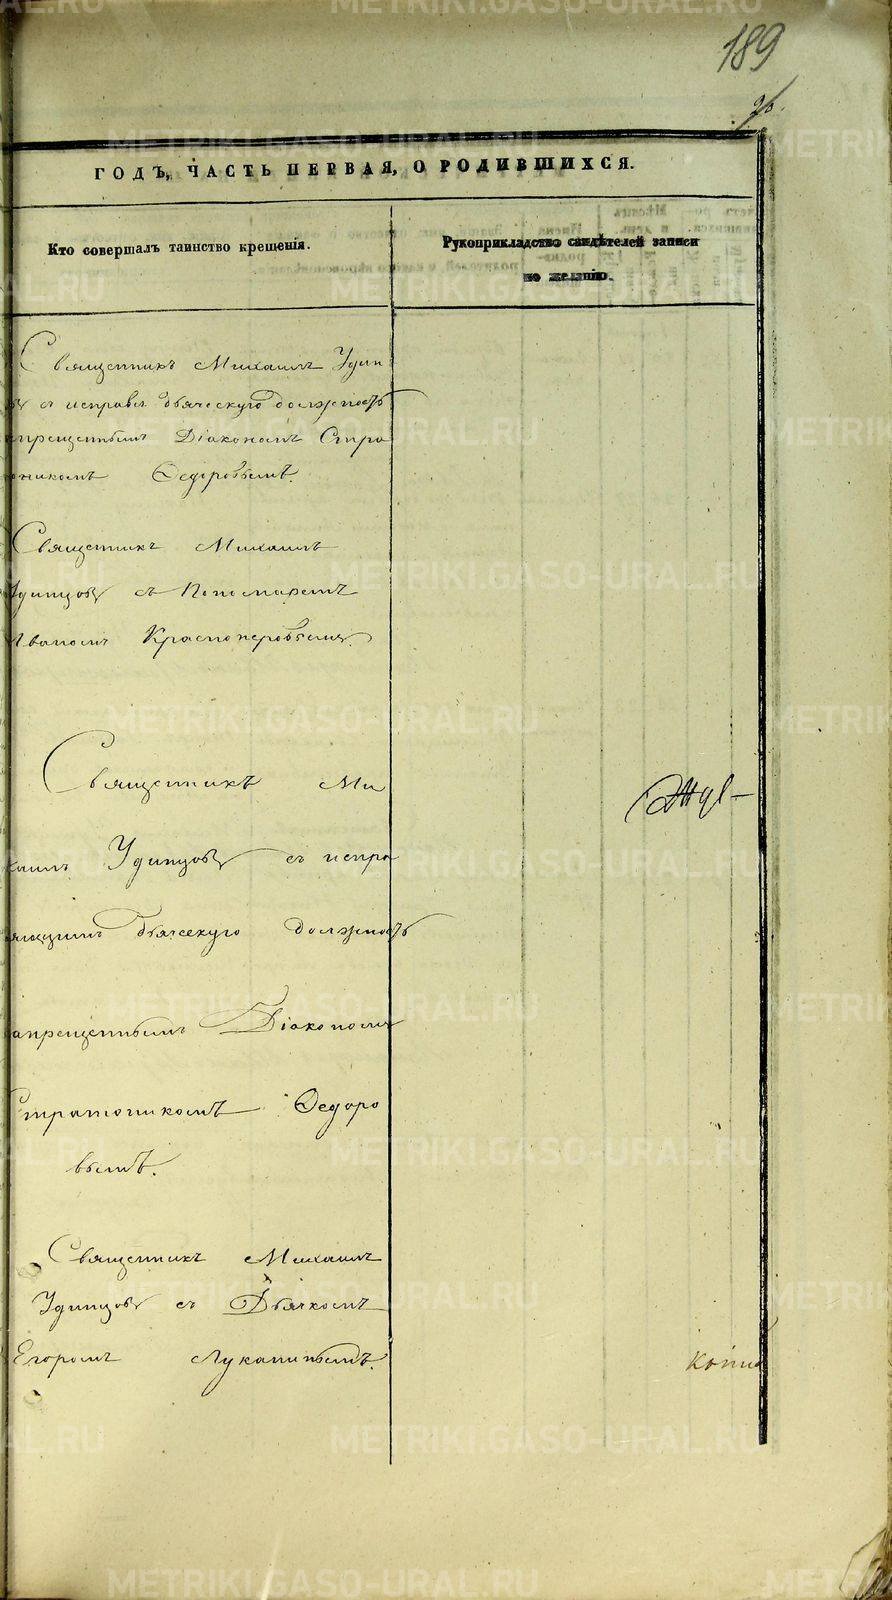 189
ГОДЪ, ЧАСТЬ ПЕРВАЯ, О РОДИВШИХСЯ.
Кто совершалъ таинство крещенія.
Рукоприкладство свидѣтелей записи
по желанію.
Священникъ Михаилъ Удин
въ съ исправл. дьяческую должность
апрещеннымъ Діакономъ Стра
оникомъ Ѳедоровымъ.
Священникъ Михаилъ
Удинцовъ съ Пономаремъ
Иваномъ Красноперовымъ.
Священникъ Ми
хаилъ Удинцовъ съ испра
вляющимъ дьяческую должность
апрещеннымъ Діакономъ
Стратоникомъ Ѳедоро
вымъ.
Священникъ Михаилъ
Удинцовъ съ Дьячкомъ
Егоромъ Лукинымъ.
METRIKI.GASO-URAL.RU